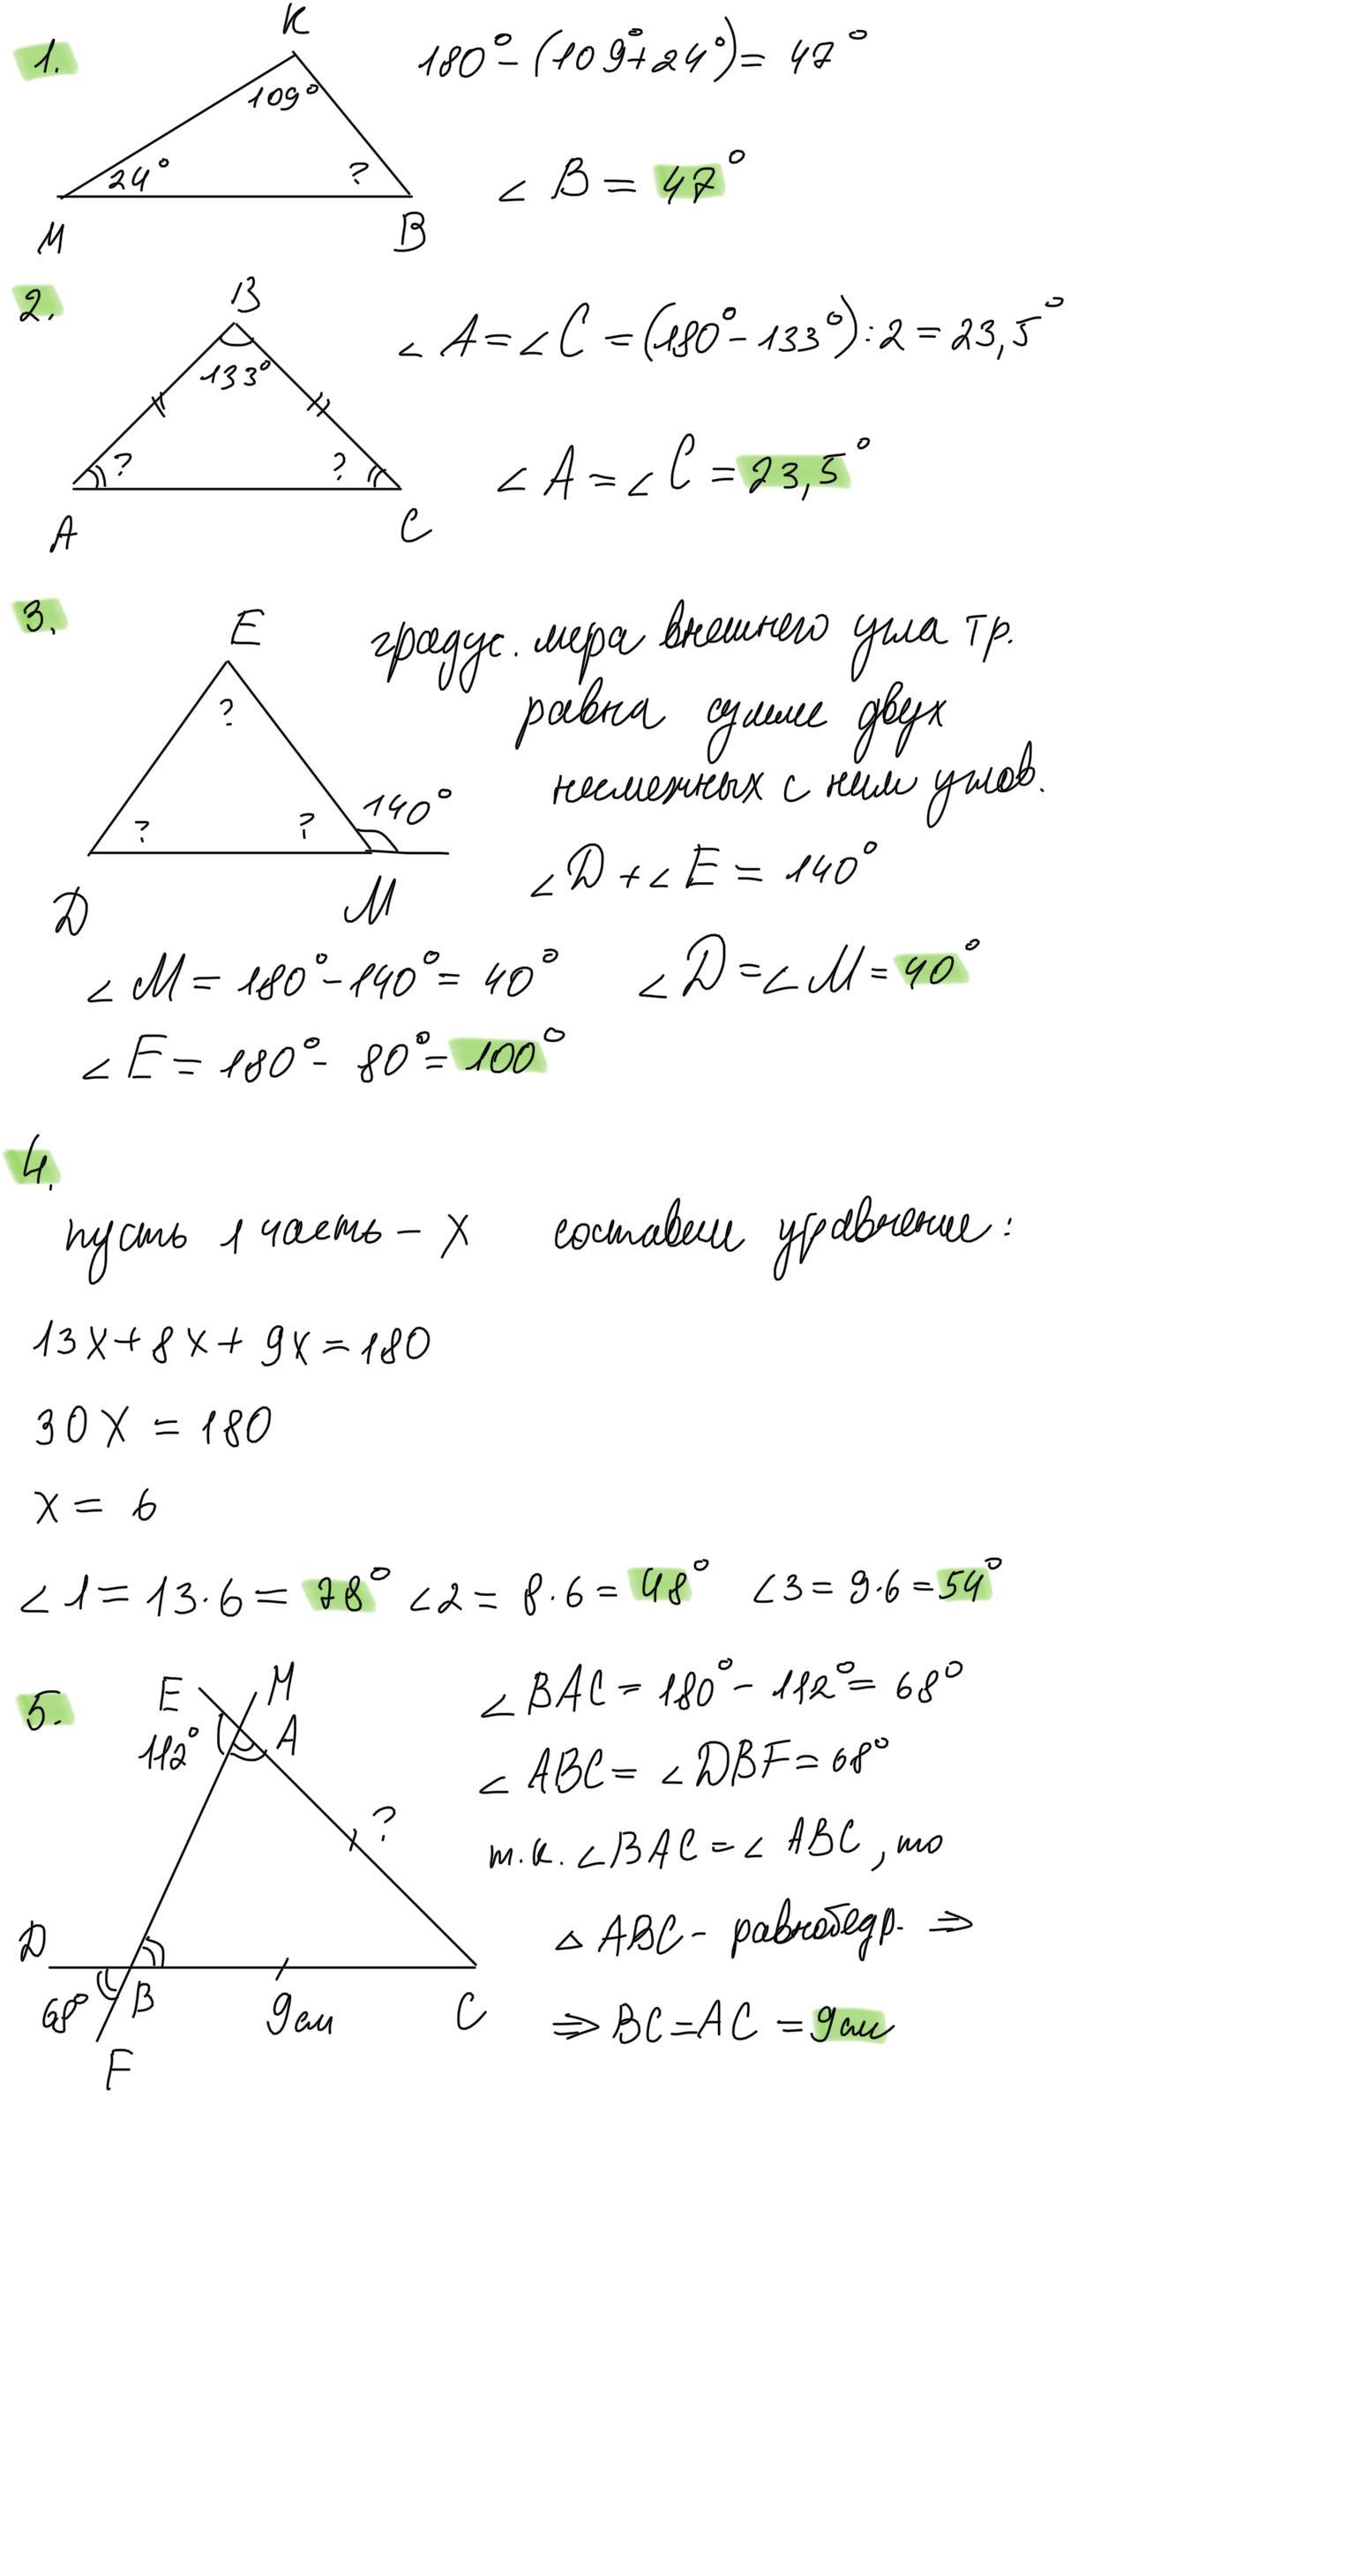 1.
K
109°
24°
?
M
B
180° - (109° + 24°) = 47°
∠ B = 47°
2.
B
133°
?
?
A
C
∠ A = ∠ C = (180° - 133°) : 2 = 23,5°
∠ A = ∠ C = 23,5°
3.
E
?
?
?
140°
D
M
градус. мера внешнего угла тр.
равна сумме двух
несмежных с ним углов.
∠ D + ∠ E = 140°
∠ M = 180° - 140° = 40°
∠ D = ∠ M = 40°
∠ E = 180° - 80° = 100°
4.
пусть 1 часть - x составим уравнение:
13x + 8x + 9x = 180
30x = 180
x = 6
∠ 1 = 13 · 6 = 78° ∠ 2 = 8 · 6 = 48° ∠ 3 = 9 · 6 = 54°
5.
E
M
112°
A
?
D
68°
B
9см
C
F
∠ BAC = 180° - 112° = 68°
∠ ABC = ∠ DBF = 68°
т.к. ∠ BAC = ∠ ABC, то
△ ABC - равнобедр. ⇒
⇒ BC = AC = 9см